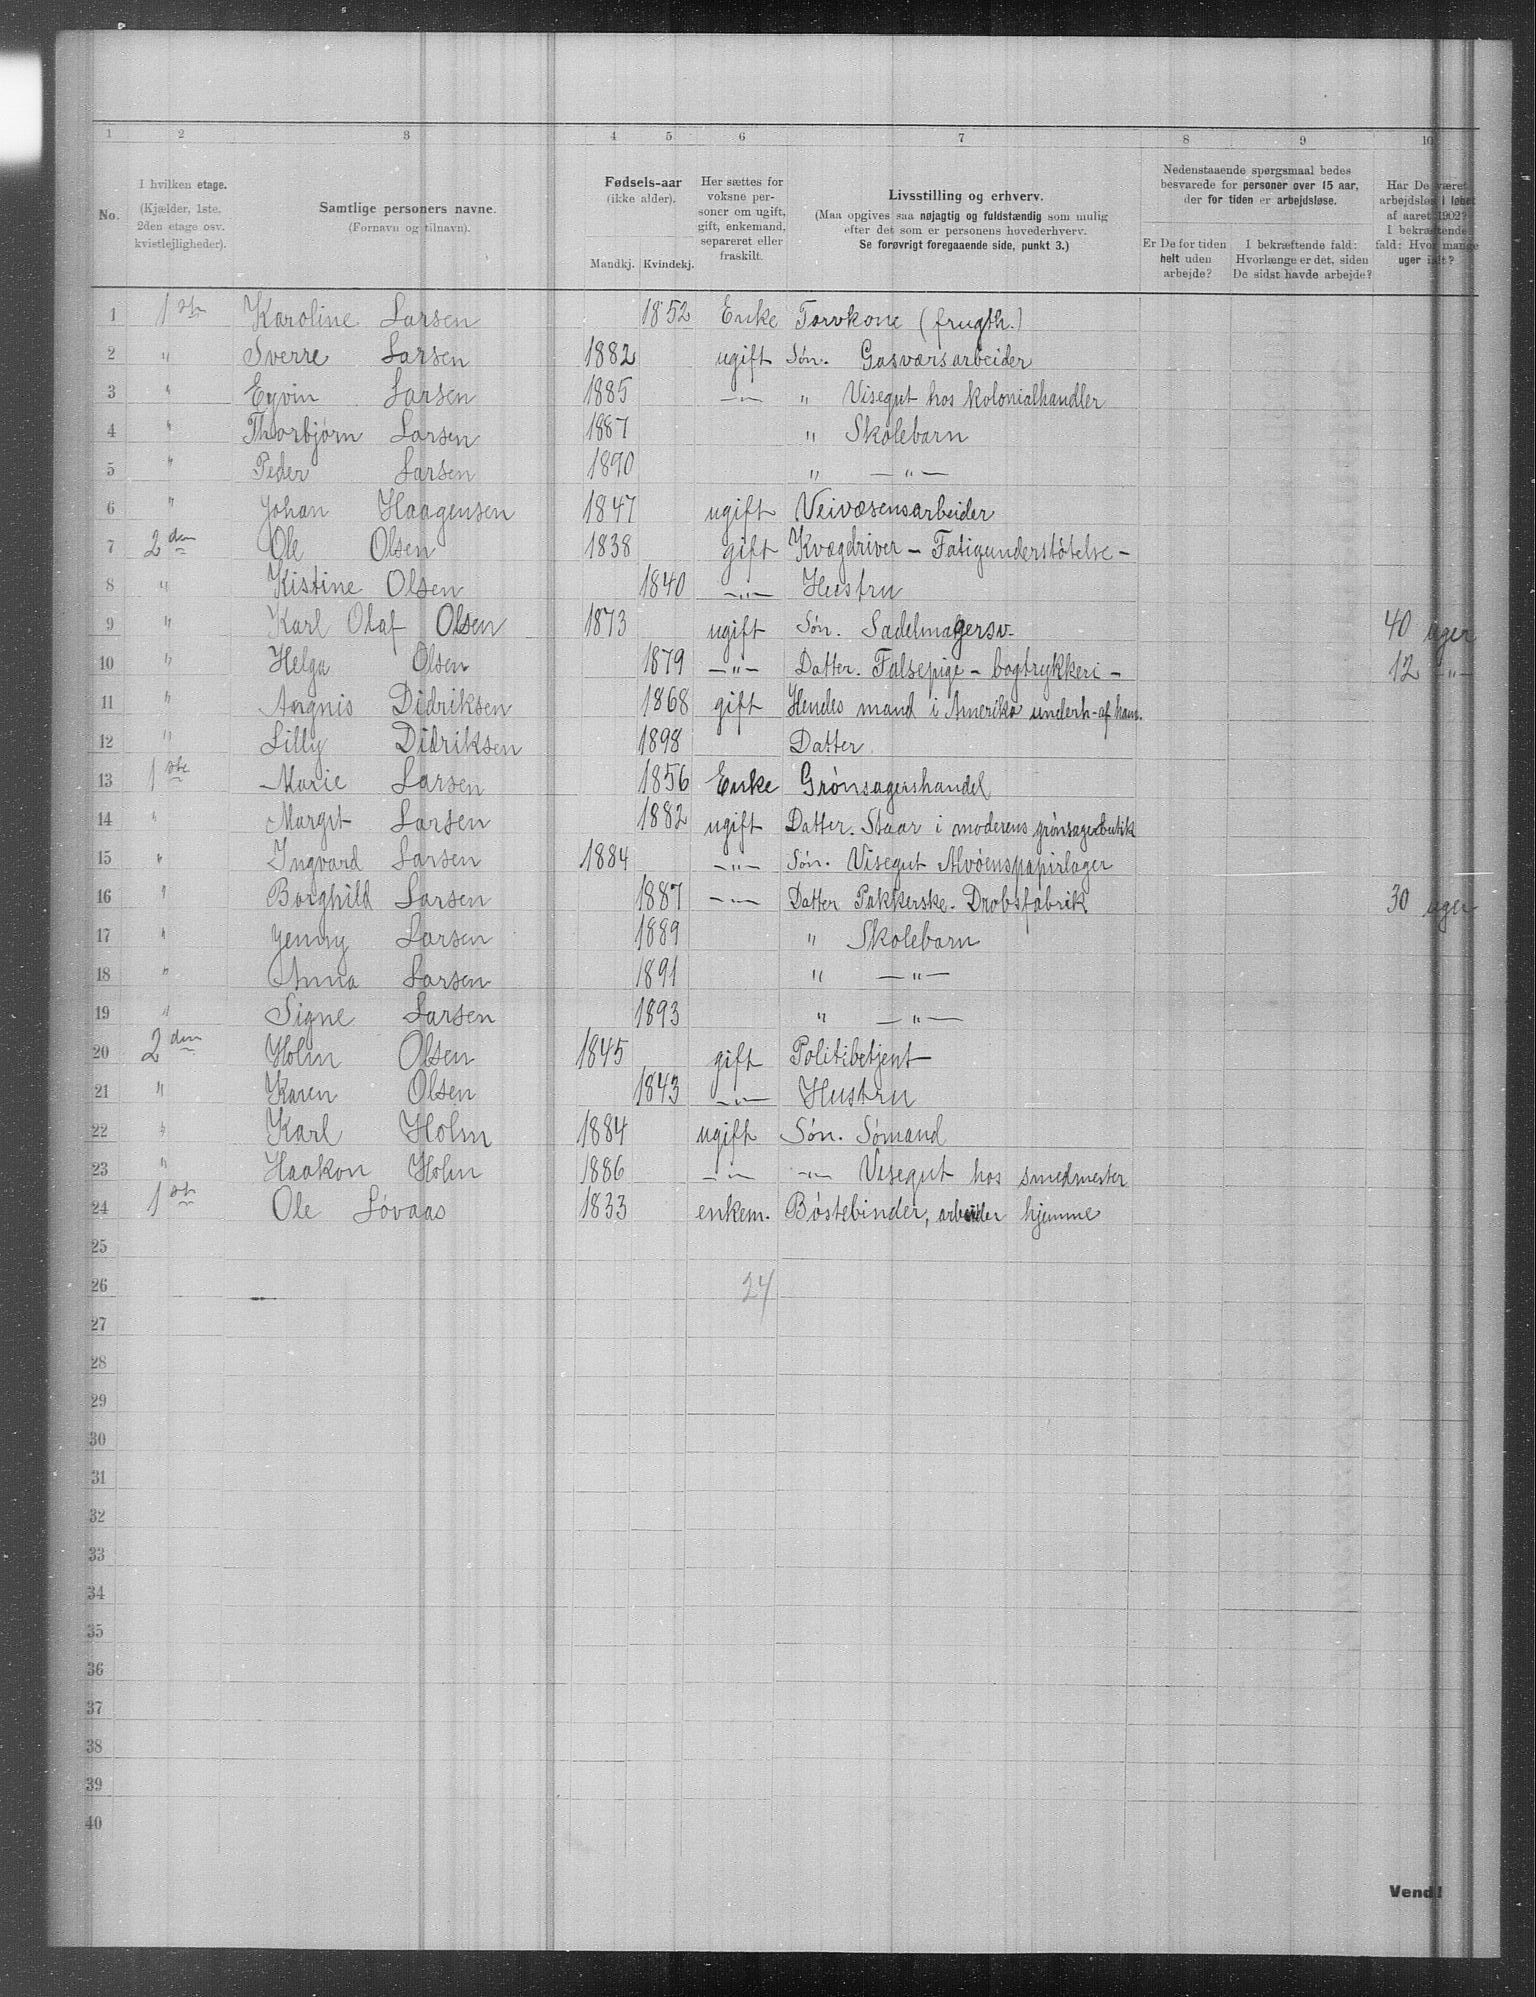 1 2 3 4 5 6 7 8 9 10
No.
I hvilken etage.
(Kjælder, 1ste.
2den etage osv.
kvistlejligheder).
Samtlige personers navne.
(Fornavn og tilnavn).
Fødsels-aar
(ikke alder).
Mandkj. Kvindekj.
Her sættes for
voksne per-
soner om ugift,
gift, enkemand,
separeret eller
fraskilt.
Livsstilling og erhverv.
(Maa opgives saa nøjagtig og fuldstændig som mulig
efter det som er personens hovederhverv.
Se forøvrigt foregaaende side, punkt 3.)
Nedenstaaende spørgsmaal bedes
besvarede for personer over 15 aar,
der for tiden er arbejdsløse.
Er De for tiden
helt uden
arbejde?
I bekræftende fald:
Hvorlænge er det, siden
De sidst havde arbejde?
Har De været
arbejdsløs i løbet
af aaret 1902?
I bekræftende
fald: Hvor mange
uger ialt?
1 1ste Karoline Larsen 1852 Enke Torvkone (frugth.)
2 " Sverre Larsen 1882 ugift Søn. Gasværsarbeider
3 " Eyvin Larsen 1885 —"— " Visegut hos kolonialhandler
4 " Thorbjørn Larsen 1887 " Skolebarn
5 " Peder Larsen 1890 " —"—
6 " Johan Haagensen 1847 ugift Veivæsensarbeider
7 2den Ole Olsen 1838 gift Kvægdriver – Fatigunderstøtelse –
8 " Kistine Olsen 1840 —"— Hustru
9 " Karl Olaf Olsen 1873 ugift Søn. Sadelmagersv. 40 uger
10 " Helga Olsen 1879 —"— Datter. Falsepige – bogtrykkeri – 12 –"–
11 " Angnis Didriksen 1868 gift Hendes mand i Amerika underh. af ham.
12 " Lilly Didriksen 1898 Datter
13 1ste Marie Larsen 1856 Enke Grønsagershandel
14 " Margit Larsen 1882 ugift Datter. Staar i moderens grønsagerbutik
15 " Ingvard Larsen 1884 —"— Søn. Visegut Alvøenspapirlager
16 " Borghild Larsen 1887 —"— Datter Pakkerske. Dropsfabrik 30 uger
17 " Jenny Larsen 1889 " Skolebarn
18 " Anna Larsen 1891 " —"—
19 " Signe Larsen 1893 " —"—
20 2den Holm Olsen 1845 gift Politibetjent
21 " Karen Olsen 1843 —"— Hustru
22 " Karl Holm 1884 ugift Søn. Sømand
23 " Haakon Holm 1886 —"— —"— Visegut hos smedmester
24 1ste Ole Løvaas 1833 enkem. Bøstebinder, arbeider hjemme
25
26 24
27
28
29
30
31
32
33
34
35
36
37
38
39
40
Vend!